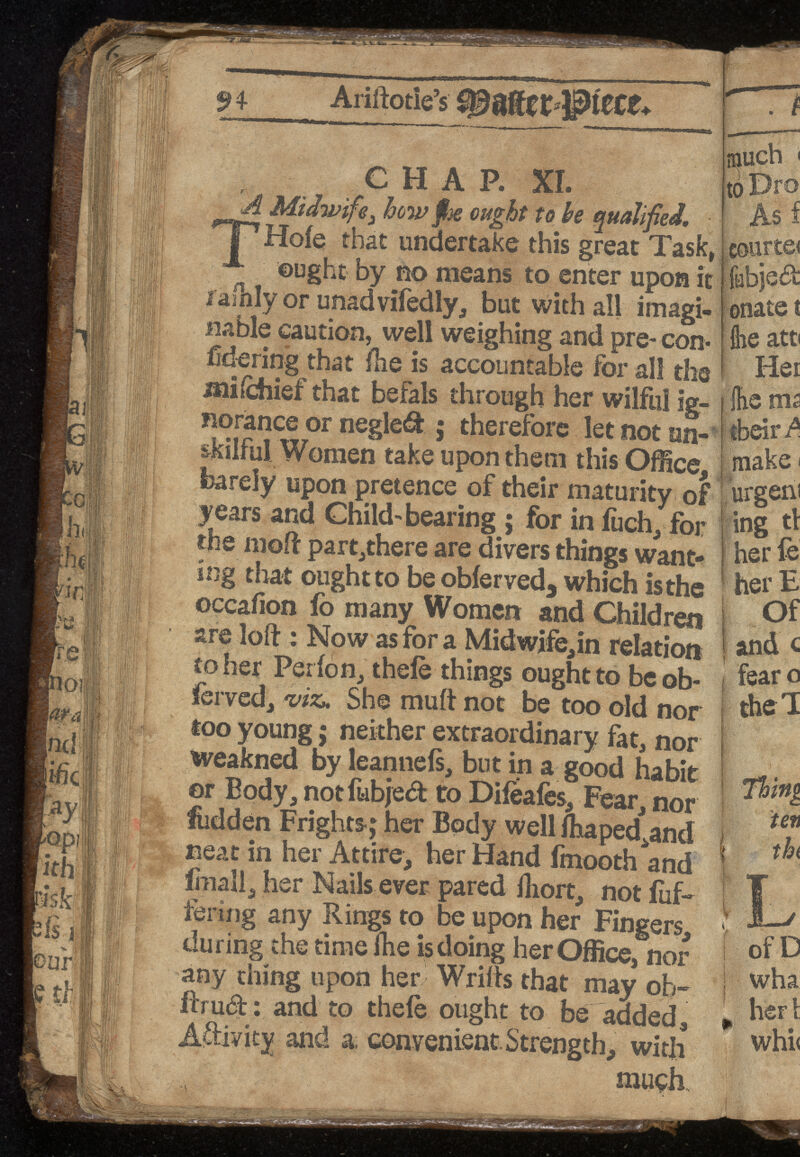 94 Ariſtotle's Maſter-Piece.
CHAP. XI.
A Midwife, how ſhe ought to be qualified.
THoſe that undertake this great Task,
ought by no means to enter upon it
raſhly or unadviſedly, but with all imagi-
nable caution, well weighing and pre-con-
ſidering that ſhe is accountable for all the
miſchief that befals through her wilful ig-
norance or neglect ; therefore let not un-
skilful Women take upon them this Office,
barely upon pretence of their maturity of
years and Child-bearing ; for in ſuch, for
the moſt part,there are divers things want-
ing that ought to be obſerved, which is the
occaſion ſo many Women and Children
are loſt : Now as for a Midwife,in relation
to her Perſon, theſe things ought to be ob-
ſerved, viz. She muſt not be too old nor
too young ; neither extraordinary fat, nor
weakned by leanneſs, but in a good habit
or Body, not ſubject to Diſeaſes, Fear, nor
ſudden Frights ; her Body well ſhaped,and
neat in her Attire, her Hand ſmooth and
ſmall, her Nails ever pared ſhort, not ſuf-
fering any Rings to be upon her Fingers,
during the time ſhe is doing her Office, nor
any thing upon her Wriſts that may ob-
ſtruct : and to theſe ought to be added,
Activity and a convenient Strength, with
much
much
to Dro
As f
courte
ſubject
onate t
ſhe att
Her
ſhe ma
their A
make
urgent
ing th
her ſe
her E
Of
and c
fear o
the T
Thing
ten
the
L
of D
wha
her b
whic